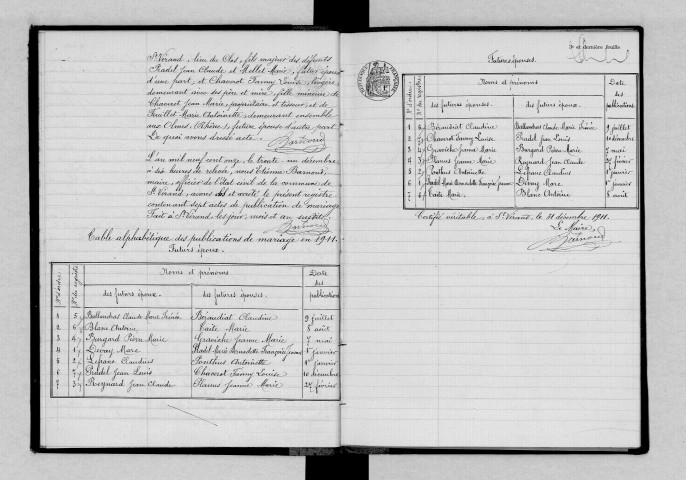 St Vérand, lieu du Clos, fils majeur des défunts
Pradel Jean Claude et Mellet Marie, futur époux
d'une part, et Chavorot Fanny Louise, lingère
demeurant avec ses père et mère, fille mineure de
Chavorot Jean Marie, propriétaire et tisseur, et de
Feuillet Marie Antoinette, demeurant ensemble
aux Olmes (Rhône), future épouse d'autre part.
De quoi avons dressé acte.
L'an mil neuf cent onze, le trente un décembre
à six heures de relevée, nous Etienne Barnoud,
maire, officier de l'état civil de la commune de
St Vérand, avons clos et arrêté le présent registre
contenant sept actes de publication de mariage
Fait à St Vérand les jour, mois et an susdits
Barnoud
Table alphabétique des publications de mariage en 1911.
Futurs époux.
Nos d'ordre Nos du registre Noms et prénoms Date des publications
des futurs époux. des futures épouses.
1 5 Ballandras Claude Marie Irénée Béraudiat Claudine 9 juillet
2 6 Blanc Antoine Taite Marie 8 août
3 4 Burgard Pierre Marie Graviche Jeanne Marie 7 mai
4 1 Devay Marc Pradel Marie Bernadette Françoise Jeanne 1er janvier
5 2 Lefranc Claudius Ponthus Antoinette 1er janvier
6 7 Pradel Jean Louis Chavorot Fanny Louise 10 décembre
7 3 Reynard Jean Claude Planus Jeanne Marie 27 février
3e et dernière feuille
Futures épouses.
Nos d'ordre Nos du registre Noms et prénoms Date des publications
des futures épouses. des futurs époux.
1 5 Béraudiat Claudine Ballandras Claude Marie Irénée 9 juillet
2 7 Chavorot Fanny Louise Pradel Jean Louis 10 décembre
3 4 Graviche Jeanne Marie Burgard Pierre Marie 7 mai
4 3 Planus Jeanne Marie Reynard Jean Claude 27 février
5 2 Ponthus Antoinette Lefranc Claudius 1er janvier
6 1 Pradel Marie Bernadette Françoise Jeanne Devay Marc 1er janvier
7 6 Taite Marie Blanc Antoine 8 août
Certifié véritable, à St Vérand, le 31 décembre 1911.
Le Maire,
Barnoud